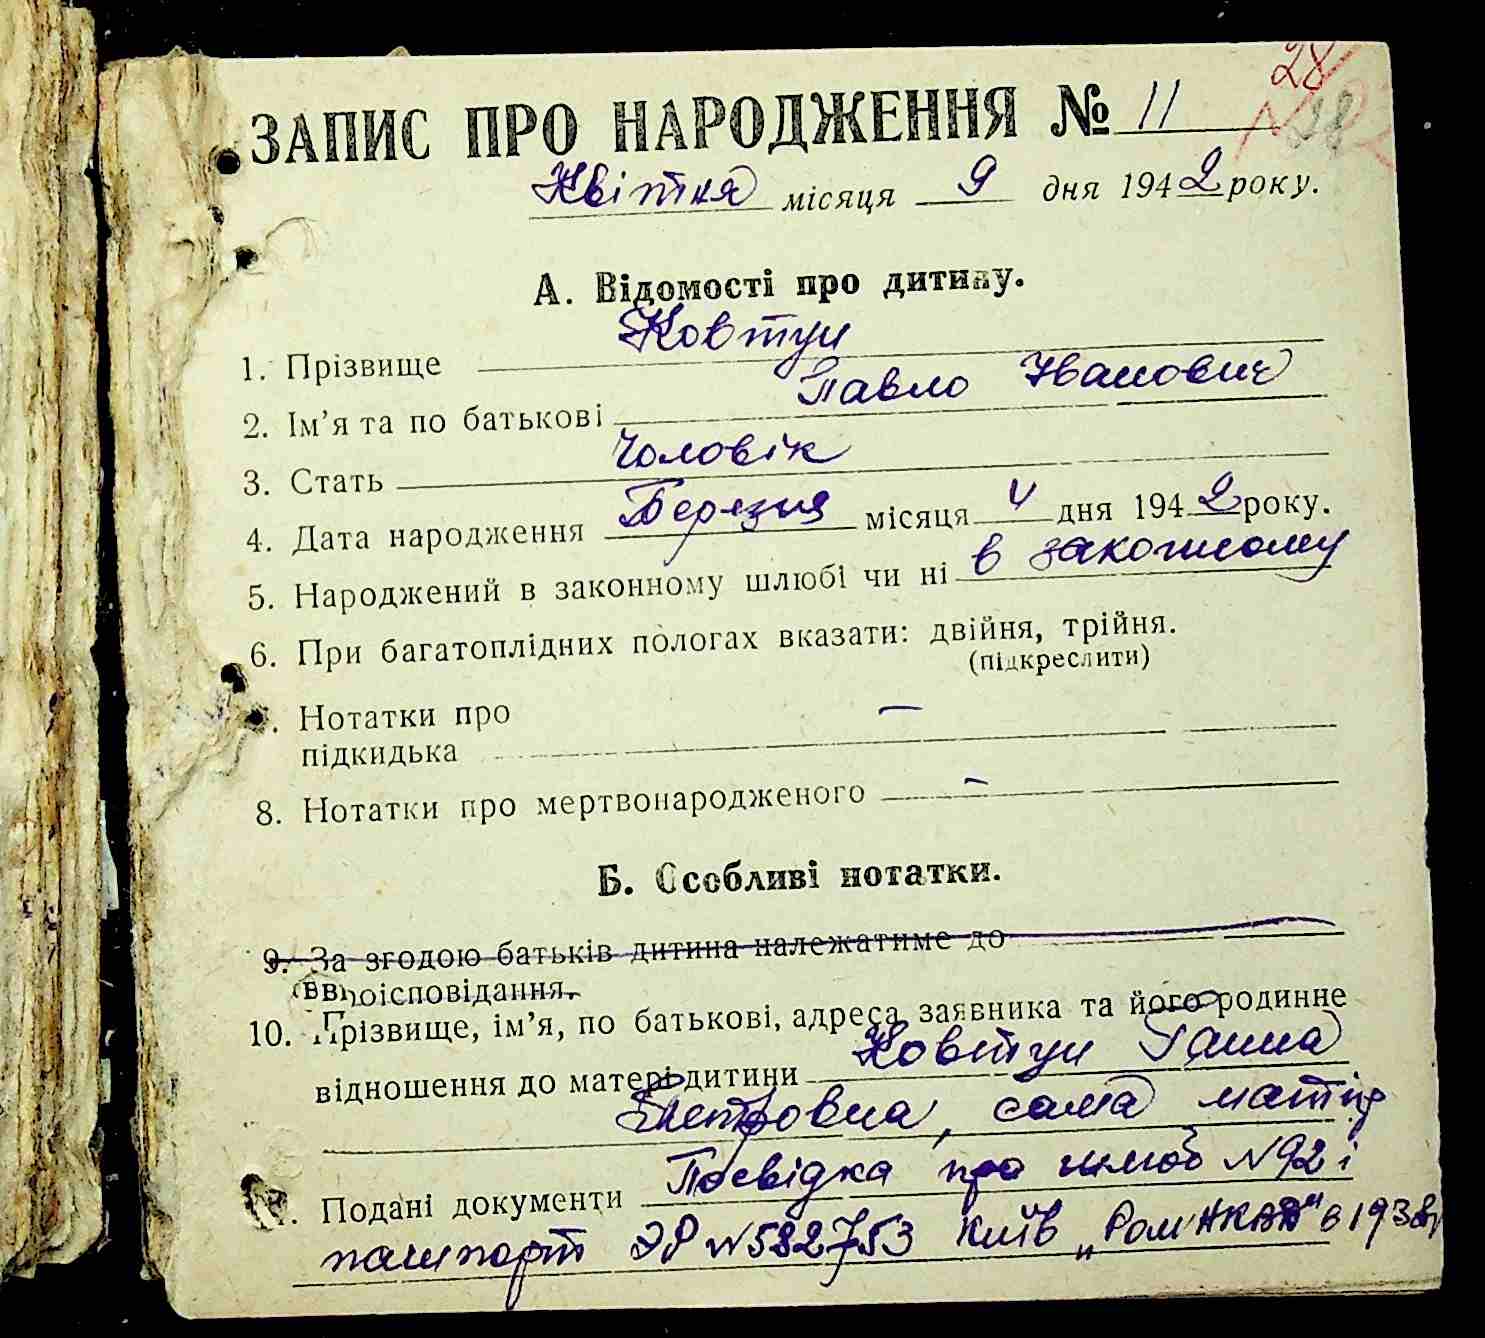 28
ЗАПИС ПРО НАРОДЖЕННЯ № 11
Квітня місяця 9 дня 1942 року.
А. Відомості про дитину.
1. Прізвище Ковтун
2. Ім'я та по батькові Павло Іванович
3. Стать Чоловік
4. Дата народження Березня місяця 4 дня 1942 року.
5. Народжений в законному шлюбі чи ні в законному
6. При багатоплідних пологах вказати: двійня, трійня.
(підкреслити)
. Нотатки про —
підкидька
8. Нотатки про мертвонародженого —
Б. Особливі нотатки.
9. За згодою батьків дитина належатиме до
віроісповідання.
10. Прізвище, ім'я, по батькові, адреса заявника та його родинне
відношення до матері дитини Ковтун Ганна
Петровна, сама матір
. Подані документи Посвідка про шлюб №92 і
пашпорт ЭР №582753 Київ